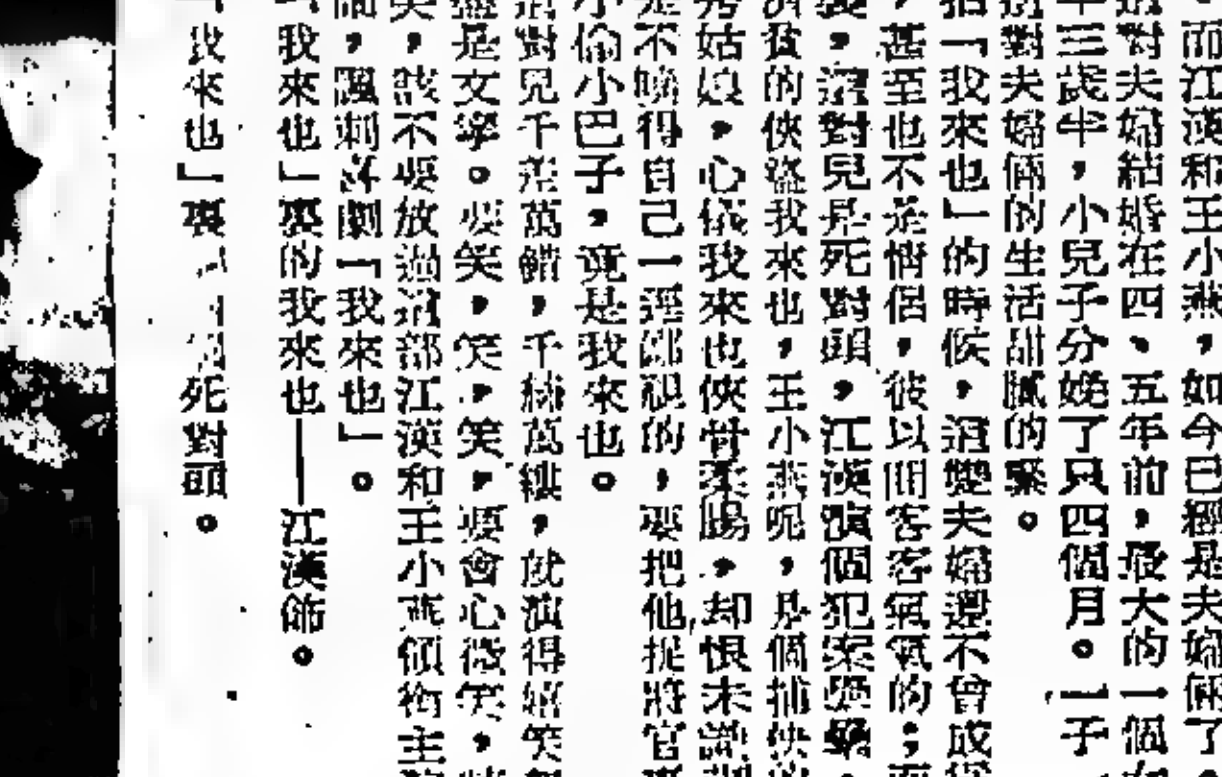 。而江漢和王小燕，如今已經是夫婦倆了。
這對夫婦結婚在四、五年前，最大的一個
三歲半，小兒子分娩了只四個月。一子
這對夫婦倆的生活甜膩的緊。
拍「我來也」的時候，這雙夫婦還不曾成
，甚至也不是情侶，彼以間客客氣氣的；而
，這對兒是死對頭，江漢演個犯案
濟貧的俠盜我來也，王小燕呢，是個捕快的
秀姑娘，心儀我來也俠骨柔腸，却恨未識
是不曉得自己一逕鄙視的，要把他捉將官
小偷小巴子，竟是我來也。
這對兒千差萬錯，千絲萬縷，就演得嬉笑
是文寧。要笑，笑，笑，要會心微笑，
笑，就不要放過這部江漢和王小燕領銜主
，諷刺喜劇「我來也」。
「我來也」裏的我來也——江漢飾。
「我來也」裏 死對頭。